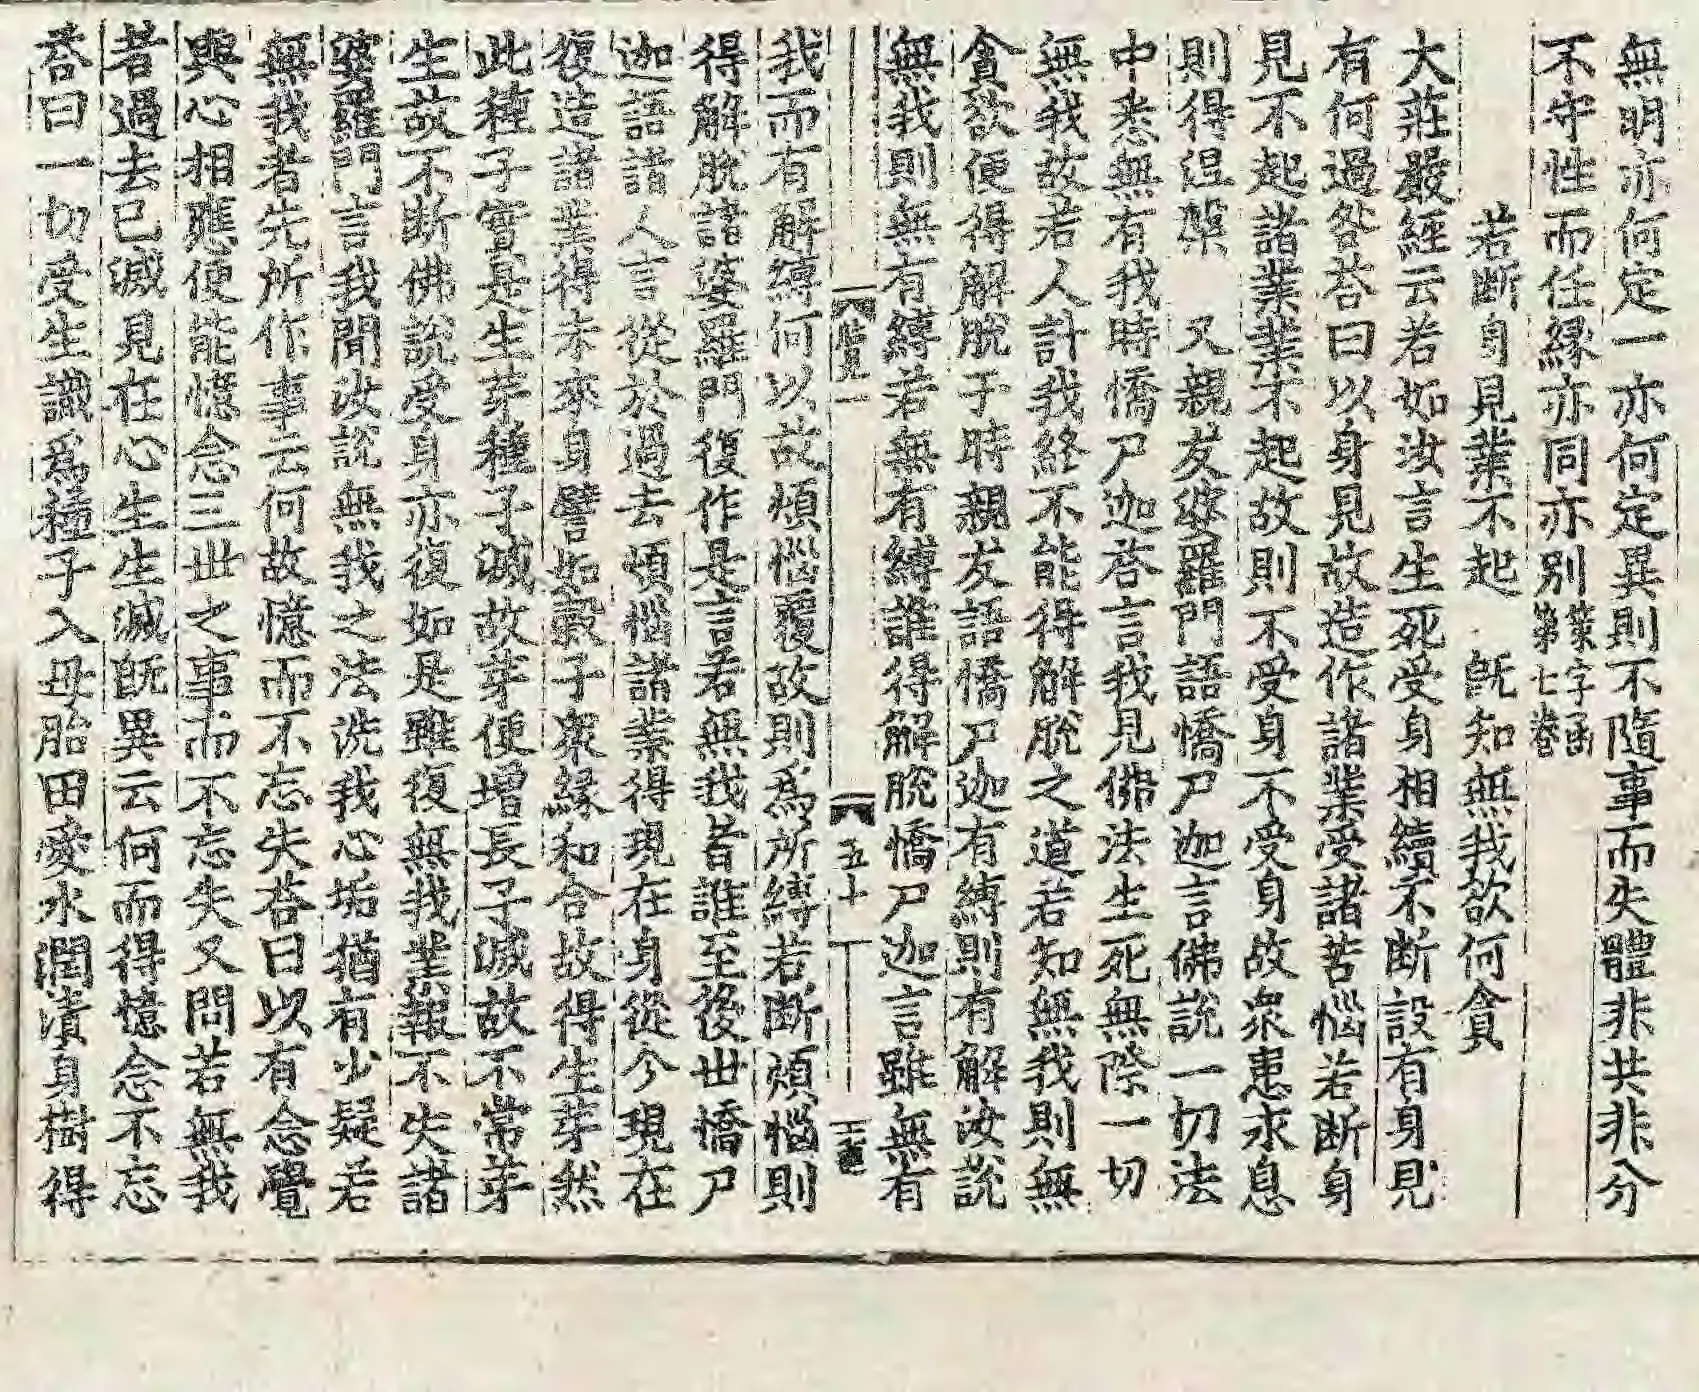 無明亦何定一亦何定異則不隨事而失體非共非分
不守性而任縁亦同亦別策字函第七卷
若斷身見業不起 旣知無我欲何貪
大莊嚴經云若如汝言生死受身相續不斷設有身見
有何過咎荅曰以身見故造作諸業受諸苦惱若斷身
見不起諸業業不起故則不受身不受身故衆患永息
則得涅槃 又親友婆羅門語憍尸迦言佛說一切法
中悉無有我時憍尸迦荅言我見佛法生死無際一切
無我故若人計我終不能得解脫之道若知無我則無
貪欲便得解脫于時親友語憍尸迦有縛則有解汝說
無我則無有縛若無有縛誰得解脫憍尸迦言雖無有
覽一 五十 
我而有解縛何以故煩惱覆故則爲所縛若斷煩惱則
得解脫諸婆羅門復作是言若無我昔誰至後世憍尸
迦語諸人言從於過去煩惱諸業得現在身從今現在
復造諸業得未來身譬如穀子衆緣和合故得生芽然
此種子實是生芽種子滅故芽便增長子滅故不常芽
生故不斷佛說受身亦復如是雖復無我業報不失諸
婆羅門言我聞汝說無我之法洗我心垢猶有少疑若
無我者先所作事云何故憶而不忘失荅曰以有念覺
與心相應便能憶念三世之事而不忘失又問若無我
者過去已滅見在心生生滅旣異云何而得憶念不忘
荅曰一切受生識爲種子入母胎田愛水潤漬身樹得